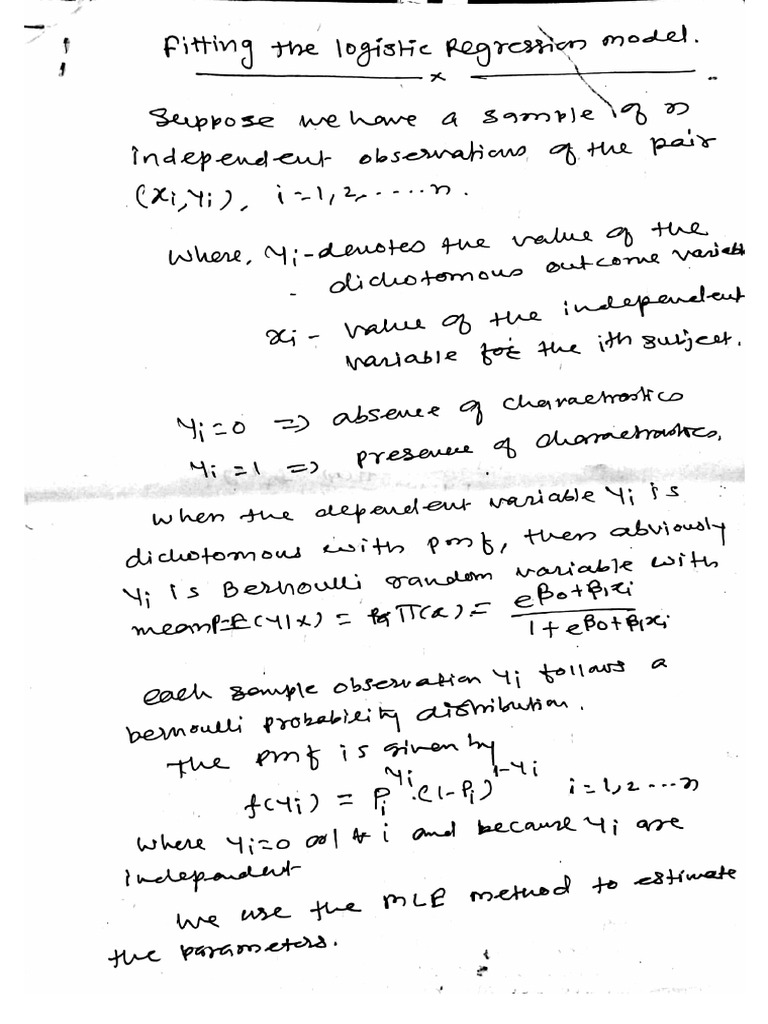 Fitting the logistic Regression model.
x
Suppose we have a sample of n
independent observations of the pair
(xi, Yi), i=1, 2, .....n.
Where, Yi - denotes the value of the
dichotomous outcome variab
xi - value of the independent
variable for the ith subject.
Yi = 0 => absence of
Yi = 1 => presence of
When the dependent variable Yi is
dichotomous with pmf, then abviously
Yi is Bernoulli random variable with
mean P=E(Y|x) = π(x) = e^β0+β1xi / 1+e^β0+β1xi
each sample observation Yi follows a
bernoulli probability distribution.
The pmf is given by
f(Yi) = Pi^Yi . (1-Pi)^1-Yi i=1, 2 ....n
Where Yi=0 or 1 ∀ i and because Yi are
independent
We use the MLE method to estimate
the parameters.